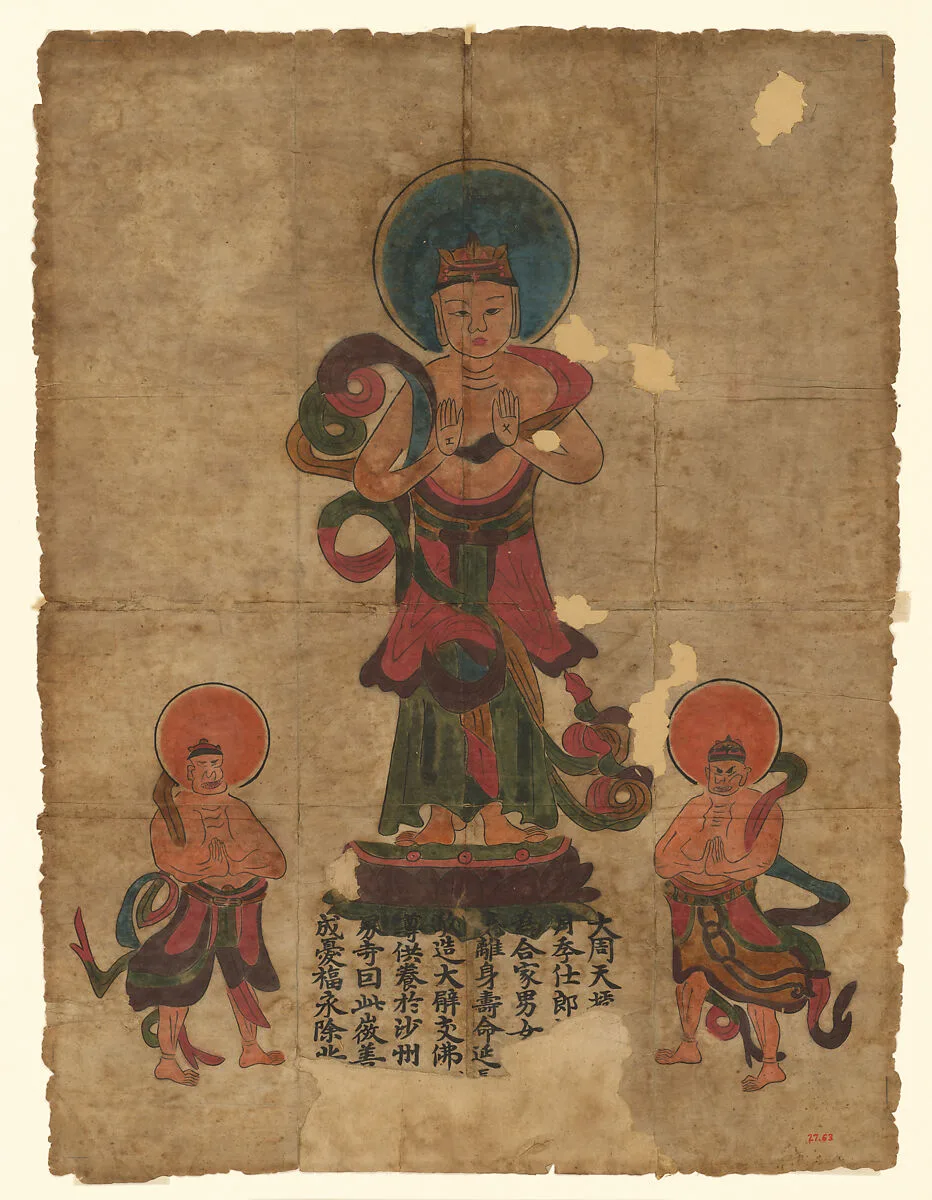 工
大周天
月李仕郎
合家男女
離身壽命延
造大辟支佛
尊供養於沙州
家寺回此微善
成憂福永除此
27.63